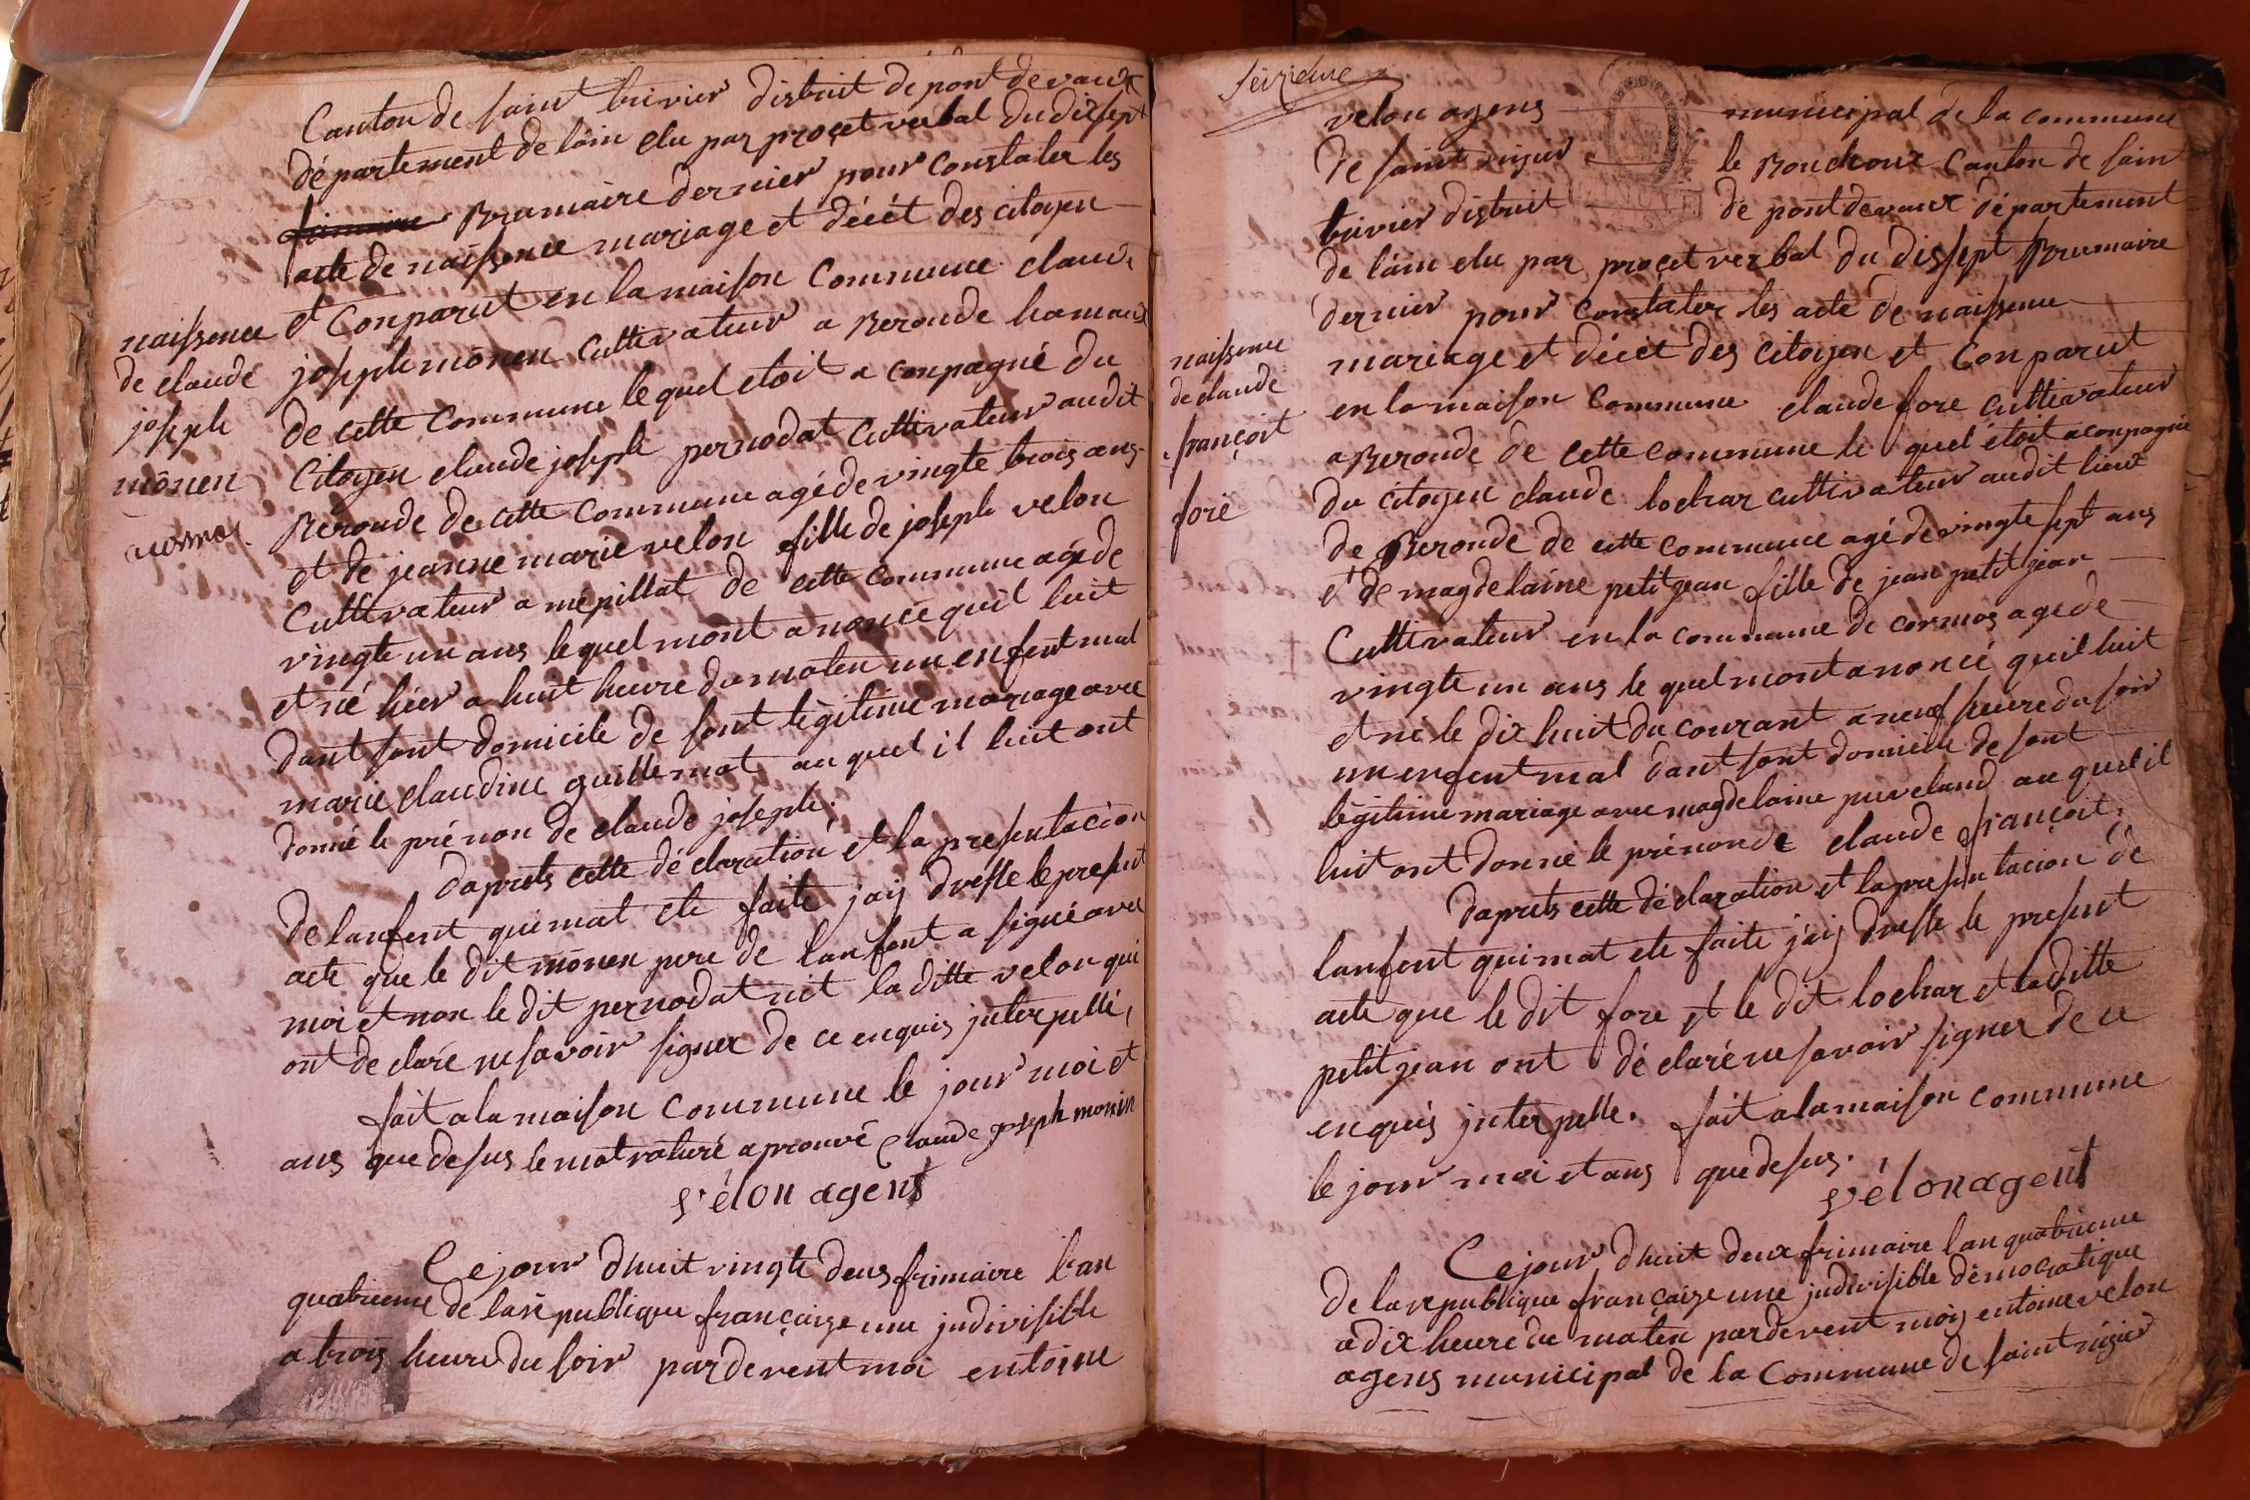 Canton de saint trivier distrit de pont de vaux
département de lain elu par procet verbal du disept
frimaire Bramaire dernier pour constater les
acte de naissence mariage et décét des citoyen
et Conparut en la maison Commune claude
joseph mônen cultivateur a Beroude hamau
de cette Commune le quel etoit a conpagné du
Citoyen claude joseph pernodat cultivateur audit
Beroude de cette Commune agé de vingte trois ans
et de jeanne marie velon fille de joseph velon
Cultivateur a mépillat de cette commune agéde
vingte un ans lequel mont anoncé quil luit
et né hier a huit heure du maten un enfent mal
dant sont domicile de sont légitime mariage avec
marie claudine guillemot au quel il luit ont
donné le prénon de claude joseph.
daprets cette déclaration et la presentacion
de lanfent qui mat ete faite jaij dresse le present
acte que le dit mônen pere de lanfent a signé avec
moi et non le dit pernodat nit la ditte velon qui
ont declaré ne savoir signer de ce enquis jnterpellé,
fait a la maison commune le jour moi et
ans que desus le mot raturé aprouvé claude joseph monin
vélon agent
Ce jour dhuit vingte deus frimaire lan
quatrieme de la république françaize une jndivisible
a trois heure du soir pardevent moi entoine
naissence
de claude
joseph
mônen
seizieme
velon agens municipal de la commune
de saint nizier le Bouchoux Canton de sain
trivier distrit de pontdevaux département
de lain elu par procet verbal du dissept Brumaire
dernier pour constater les acte de naissence
mariage et décét des citoyen et Conparut
en la maison Commune claude fore cultivateur
a Beroude de cette commune le quel étoit aconpagné
du citoyen claude lochar cultivateur audit lieux
de Beroude de cette commune agé de vingte sept ans
et de magdelaine petitjean fille de jean petit jean
Cultivateur en la commune de cormos agé de
vingte un ans le quel mont anoncé quil luit
et né le dix huit du courant a neuf heure du soir
un enfent mal dant sont domicile de sont
légitime mariage avec magdelaine puveland au quel il
luit ont donné le prénon de claude françoit.
daprets cette déclaration et la presentacion de
lanfent qui mat ete faite jaij dresse le present
acte que le dit fore et le dit lochar et la ditte
petitjean ont déclaré ne savoir signer de ce
enquis jnterpelle. fait a la maison commune
le jour moi et ans que desus.
vélon agent
Ce jour dhuit deux frimaire lan quatrieme
de la republique françaize une jndivisible démocratique
a dix heure du maten pardevent moij entoine velon
agens municipal de la Commune de saint nizier
naissence
de claude
françoit
foré